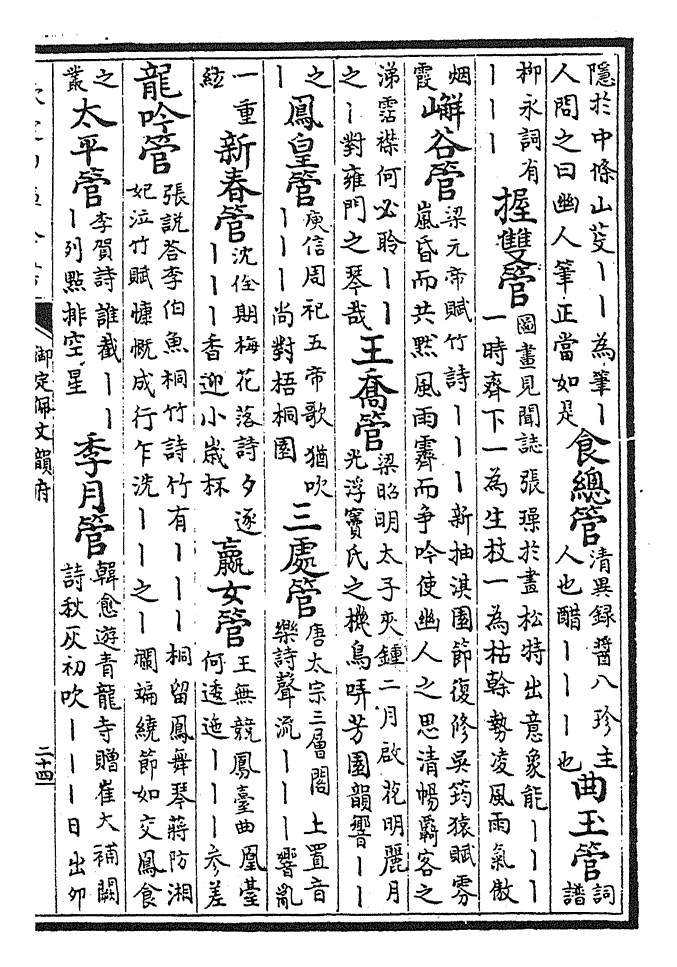 隱於中條山芟丨丨為筆丨
人問之曰幽人筆正當如是
食總管
清異録醬八珍主
人也醋丨丨丨也
曲玉管
詞
譜
栁永詞有
丨丨丨
握雙管
圖畫見聞誌張璪於畫松特出意象能丨丨丨
一時齊下一為生枝一為枯榦勢凌風雨氣傲
烟
霞
嶰谷管
梁元帝賦竹詩丨丨丨新抽淇園節復修吳筠猿賦雰
嵐昏而共黙風雨霽而争吟使幽人之思清暢覊客之
涕霑襟何必聆丨丨
之丨對雍門之琴哉
王喬管
梁昭明太子夾鍾二月啟花明麗月
光浮竇氏之機鳥哢芳園韻響丨丨
之
丨
鳳皇管
庾信周祀五帝歌猶吹
丨丨丨尚對梧桐園
三處管
唐太宗三層閣上置音
樂詩聲流丨丨丨響亂
一重
絃
新春管
沈佺期梅花落詩夕逐
丨丨丨香迎小嵗杯
嬴女管
王無競鳳臺曲凰臺
何逶迤丨丨丨參差
龍吟管
張説荅李伯魚桐竹詩竹有丨丨丨桐留鳳舞琴蔣防湘
妃泣竹賦慷慨成行乍洗丨丨之丨斕斒繞節如交鳳食
之
叢
太平管
李賀詩誰截丨丨
丨列點排空星
季月管
韓愈遊青龍寺贈崔大補闕
詩秋灰初吹丨丨丨日出卯
御定佩文韻府
二十四